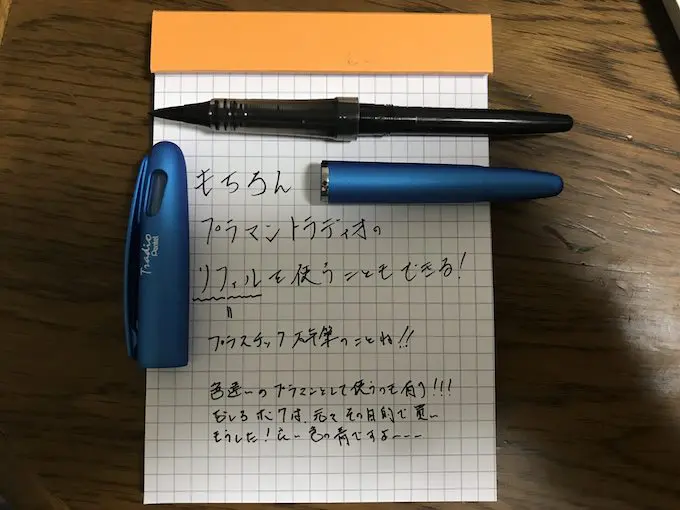 もちろん
プラマン トラディオの
リフィルを使うこともできる!
〃
プラスチック万年筆のことね!!
色違いのプラマンとして使うのも有り!!!
むしろボクは、元々その目的で買い
ましした!良い色の青ですよ---
Tradio
Pentel